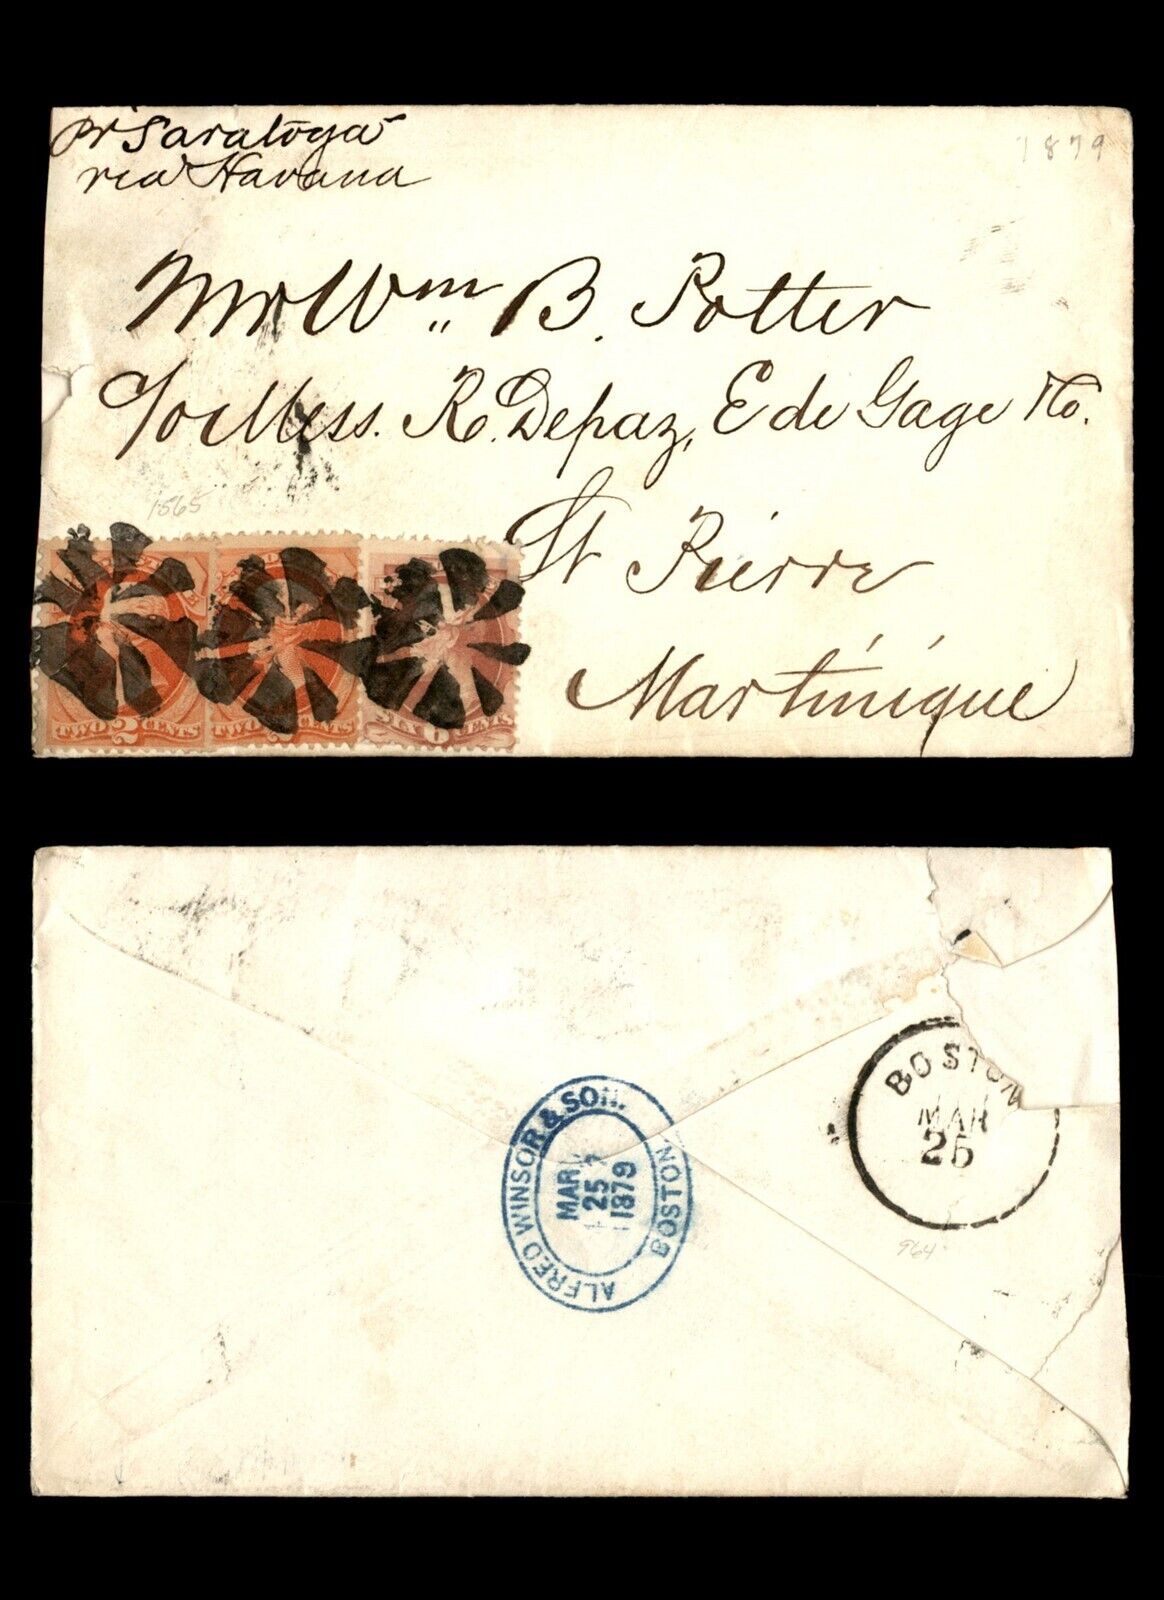 pr Saratoga
via Havana
1879
Mr Wm B. Potter
c/o Mess. R. Depaz, E de Gage & Co.
1565
St Pierre
Martinique
TWO 2 CENTS
TWO CENTS
SIX 6 CENTS
BOSTON
MAR
25
ALFRED WINSOR & SON.
MAR
25
1879
BOSTON
964